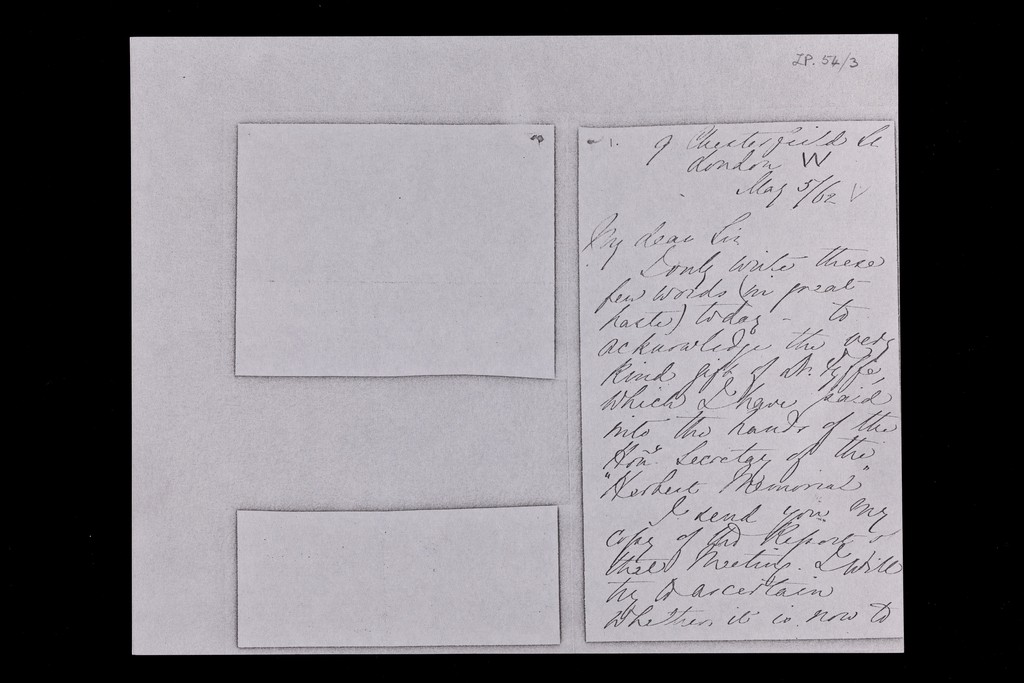 ZP. 54/3
1. 9 Chesterfield St
London W
May 5/62
My dear Sir
I only write these
few words (in great
haste) today - to
acknowledge the very
kind gift of Dr. Fyffe,
which I have paid
into the hands of the
Hon: Secretary of the
"Herbert Memorial"
I send you my
copy of the Report of
that Meeting. I will
try to ascertain
whether it is now to